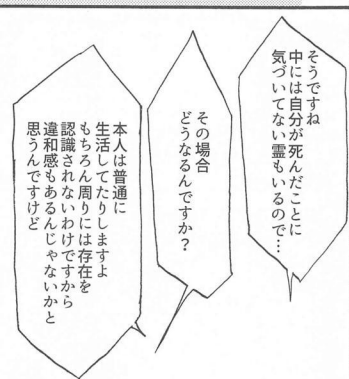 そうですね
中には自分が死んだことに
気づいてない霊もいるので…
その場合
どうなるんですか？
本人は普通に
生活してたりしますよ
もちろん周りには存在を
認識されないわけですから
違和感もあるんじゃないかと
思うんですけど